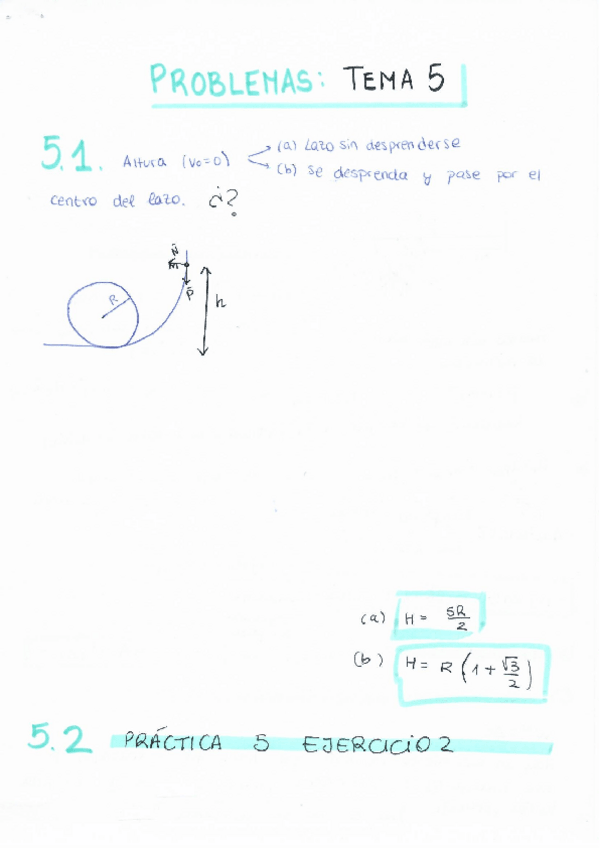 PROBLEMAS: TEMA 5
5.1. Altura (v0=0) (a) Lazo sin desprenderse
(b) Se desprenda y pase por el
centro del lazo. ¿?
N
m
P
R
h
(a) H = 5R/2
(b) H = R (1 + √3/2)
5.2 PRÁCTICA 5 EJERCICIO 2